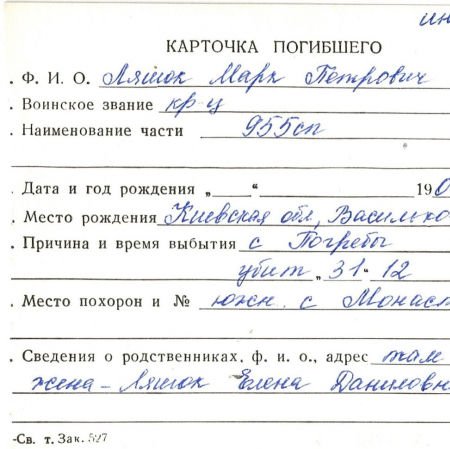 ин
КАРТОЧКА ПОГИБШЕГО
. Ф. И. О. Ляшок Марк Петрович
. Воинское звание кр-ц
. Наименование части 955сп
. Дата и год рождения „ “ 190
. Место рождения Киевская обл, Василько
. Причина и время выбытия с Погребы
убит „31“ 12
. Место похорон и № южн. с Монаст
. Сведения о родственниках, ф. и. о., адрес там
жена - Ляшок Елена Даниловн
-Св. т. Зак. 527